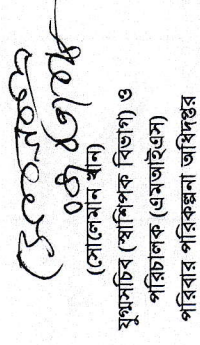 (সোলেমান খান)
যুগ্মসচিব (স্বাশিপক বিভাগ) ও
পরিচালক (এমআইএস)
পরিবার পরিকল্পনা অধিদপ্তর